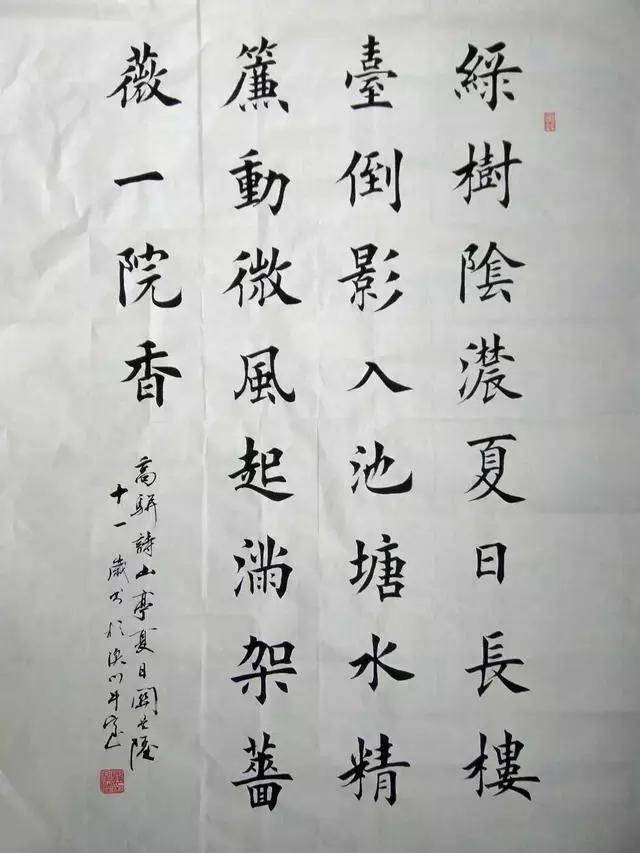 綠樹陰濃夏日長樓
臺倒影入池塘水精
簾動微風起滿架薔
薇一院香
高駢詩山亭夏日
十一歲書於漢川斗室